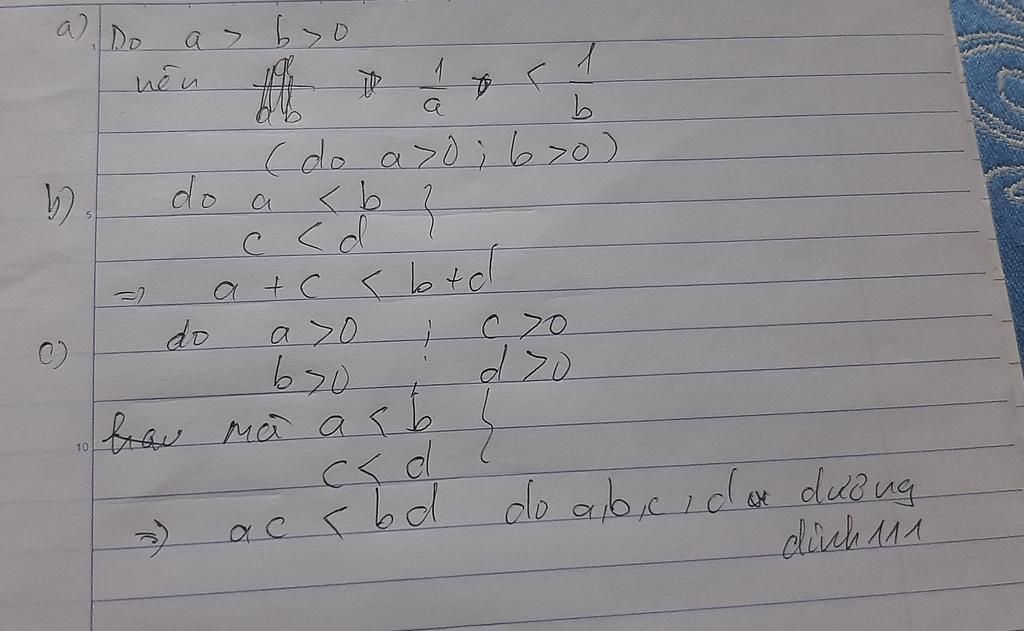 a) Do a > b > 0
nên 1/a < 1/b
(do a > 0 ; b > 0)
b) do a < b }
c < d
=> a + c < b + d
c) do a > 0 ; c > 0
b > 0 ; d > 0
mà a < b }
c < d
=> ac < bd do a, b, c, d dương